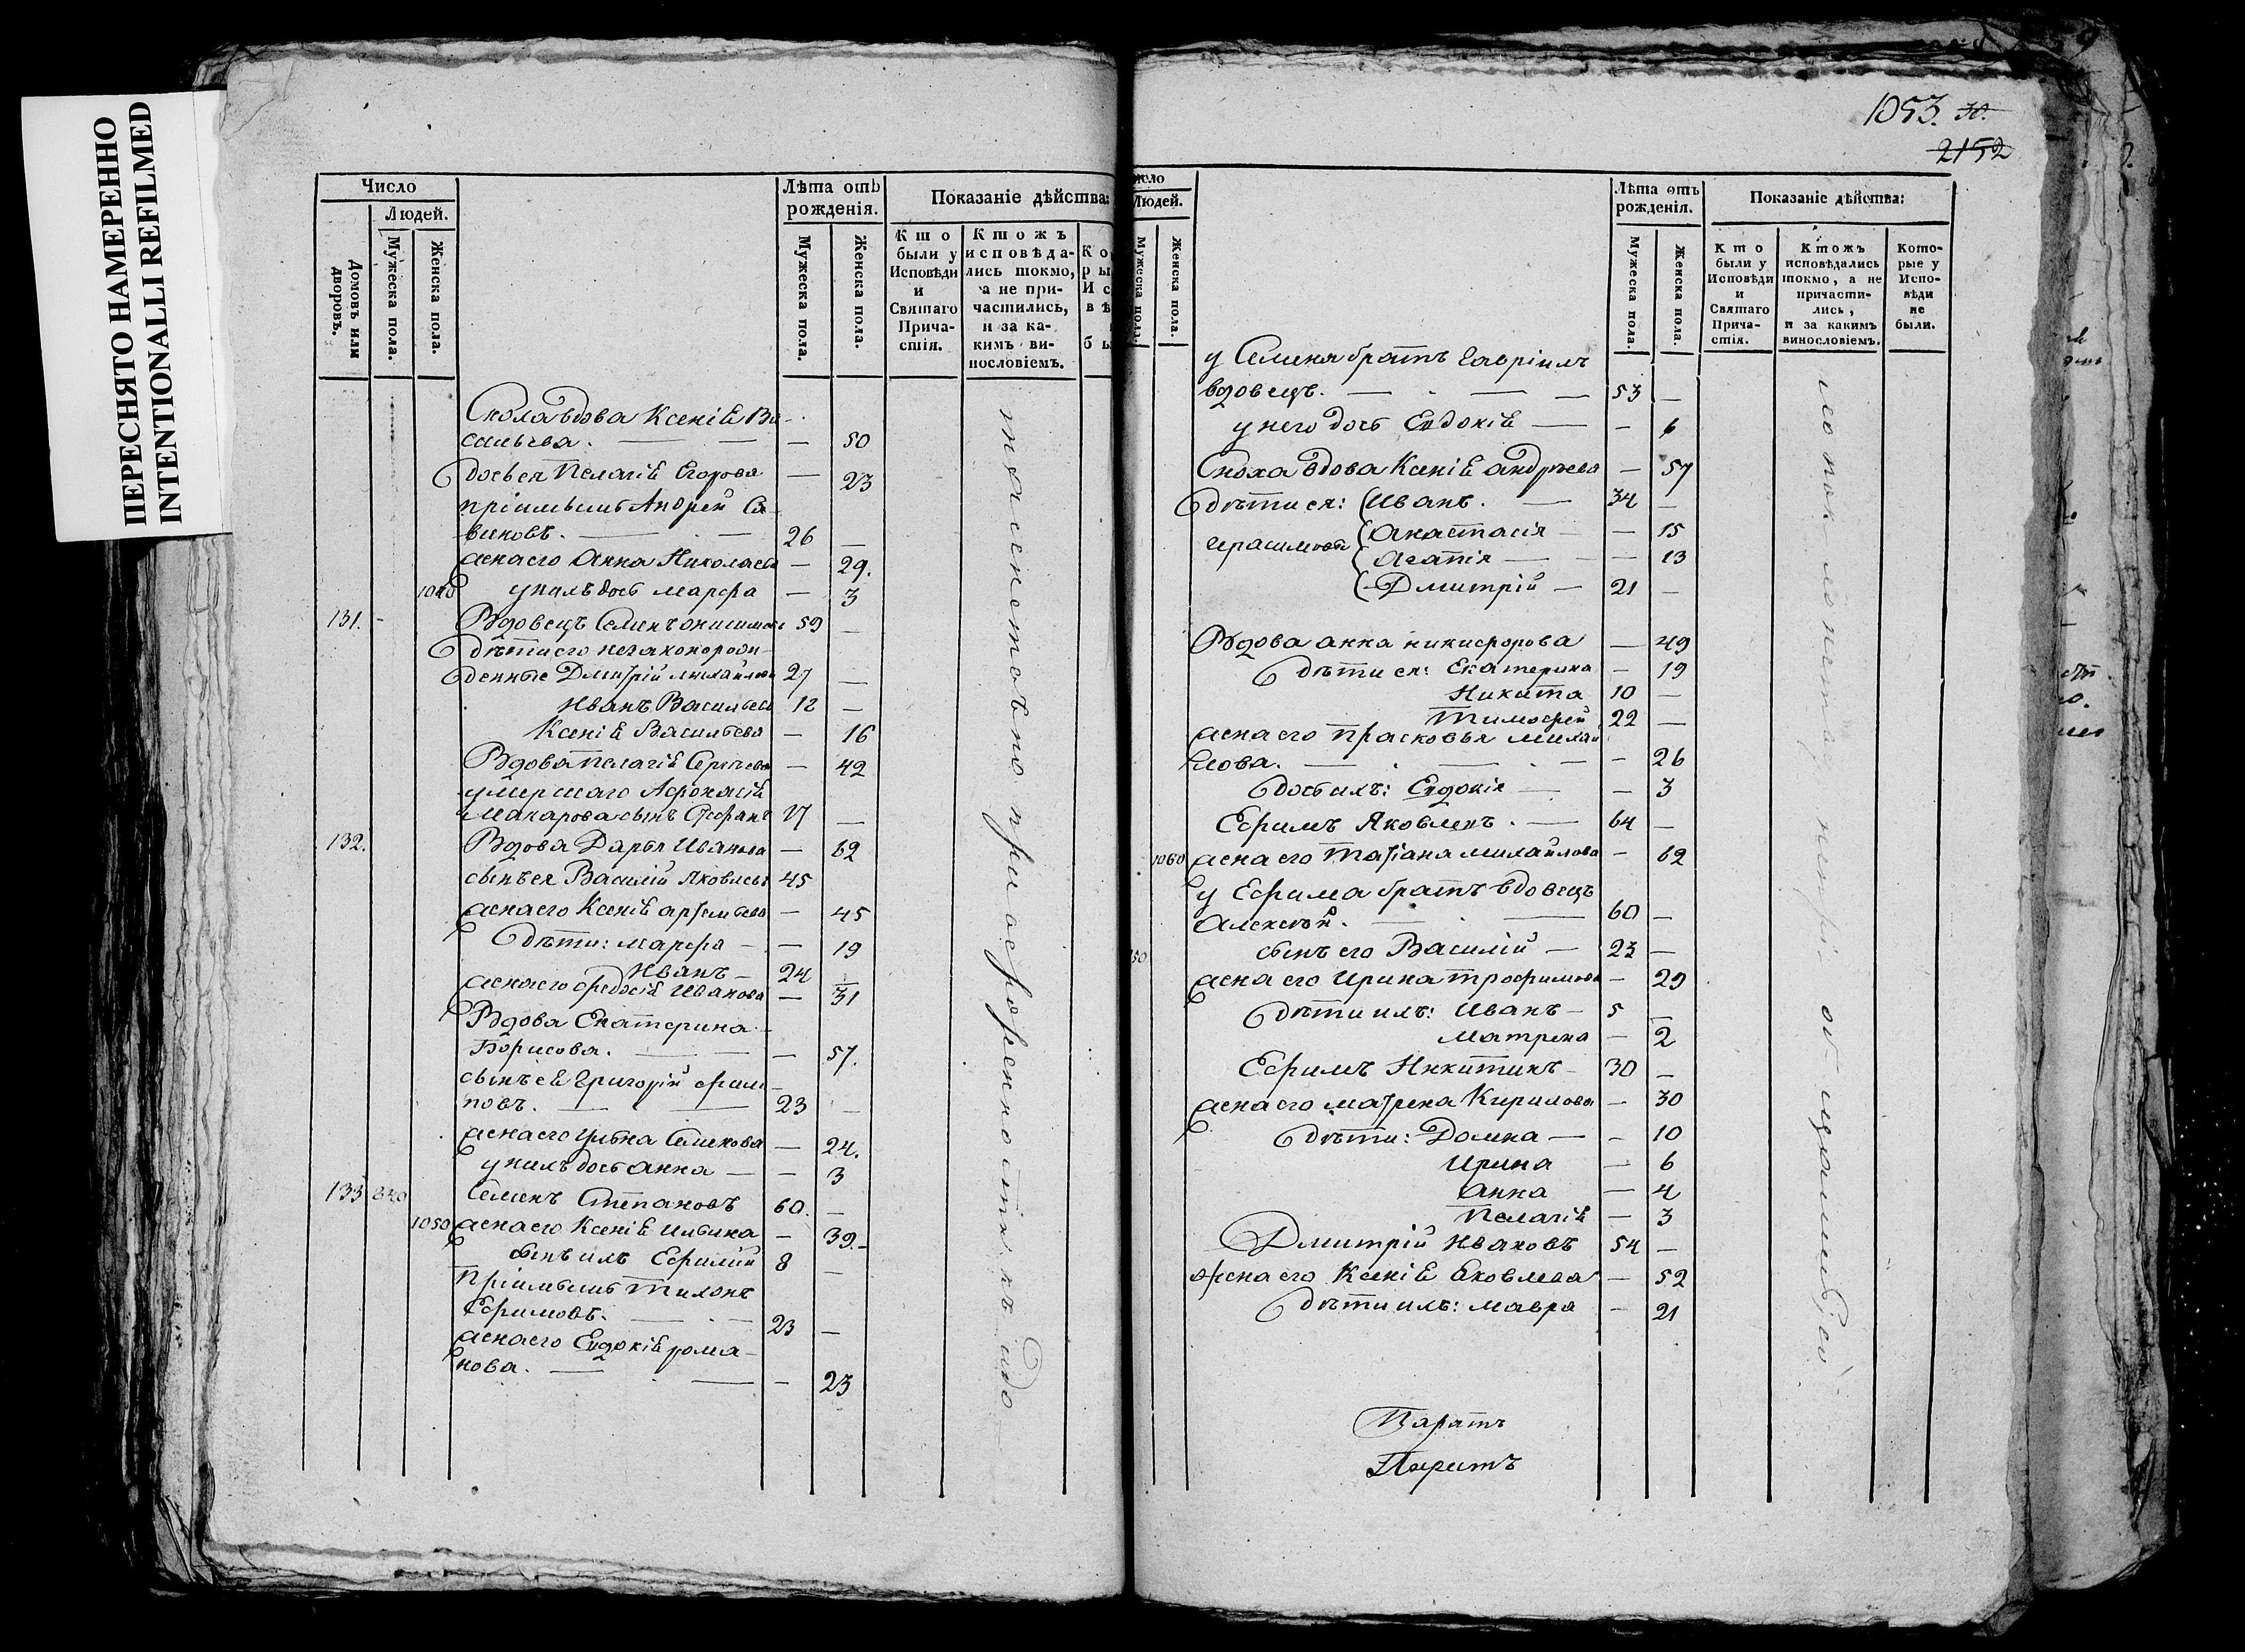 ПЕРЕСНЯТО НАМЕРЕННО
INTENTIONALLI REFILMED
Число
Людей.
Домовъ или дворовъ.
Мужеска пола.
Женска пола.
Лѣта отъ рожденія.
Мужеска пола.
Женска пола.
Показаніе дѣйства:
Кто были у Исповѣди и Святаго Причастія.
Ктожъ исповѣдались токмо, а не причастились, и за какимъ винословіемъ.
Сноха вдова Ксенія Ва-
сильева. — 50
дочь ея Пелагія Егорова — 23
пріимышъ Андрей Са-
виновъ. 26 —
жена его Анна Николаева — 29.
1040 у нихъ дочь Марфа — 3
131. Вдовецъ Семенъ Онисимовъ 59 —
дѣти его незаконорож-
денные Дмитрій Михайловъ 27 —
Иванъ Васильевъ 12 —
Ксенія Васильева — 16
Вдова Пелагія Сергѣева — 42
умершаго Афонасія
Макарова сынъ Стефанъ 17 —
132. Вдова Дарья Иванова — 62
сынъ ея Василій Яковлевъ 45
жена его Ксенія Артемьева — 45
дѣти: Марфа — 19
Иванъ 24 —
жена его Федосія Иванова — 31
Вдова Екатерина
Борисова. — 57.
сынъ ея Григорій Фили-
повъ. 23 —
жена его Ульяна Семенова — 24.
у нихъ дочь Анна — 3
133 340 Семенъ Степановъ 60. —
1050 жена его Ксенія Ильина — 39.
сынъ ихъ Ефимій 8 —
Пріимышъ Тихонъ
Ефимовъ. 23 —
жена его Евдокія Рома-
нова. — 23
1053. 30.
2152
Людей.
Мужеска пола.
Женска пола.
Лѣта отъ рожденія.
Мужеска пола.
Женска пола.
Показаніе дѣйства:
Кто были у Исповѣди и Святаго Причастія.
Ктожъ исповѣдались токмо, а не причастились, и за какимъ винословіемъ.
Которые у Исповѣди не были.
у Семена братъ Гавріилъ
вдовецъ. 53 —
у него дочь Евдокія — 6
Сноха вдова Ксенія Андреева — 57
дѣти ея: Иванъ. 34 —
Герасимовы Анастасія — 15
Агапія — 13
Дмитрій — 21 —
Вдова Анна Никифорова — 49
дѣти ея: Екатерина — 19
Никита 10 —
Тимофей 22 —
жена его Прасковья Михай-
лова. — 26
дочь ихъ: Евдокія — 3
Ефимъ Яковлевъ. 64 —
1060 жена его Татіана Михайлова — 62
у Ефима братъ вдовецъ
Алексѣй. 60 —
сынъ его Василій — 23 —
жена его Ирина Трофимова — 29
дѣти ихъ: Иванъ 5 —
Матрена — 2
Ефимъ Никитинъ 30 —
жена его Матрена Кирилова — 30
дѣти: Домна — 10
Ирина — 6
Анна — 4
Пелагія — 3
Дмитрій Ивановъ 54 —
жена его Ксенія Яковлева — 52
дѣти ихъ: Мавра — 21